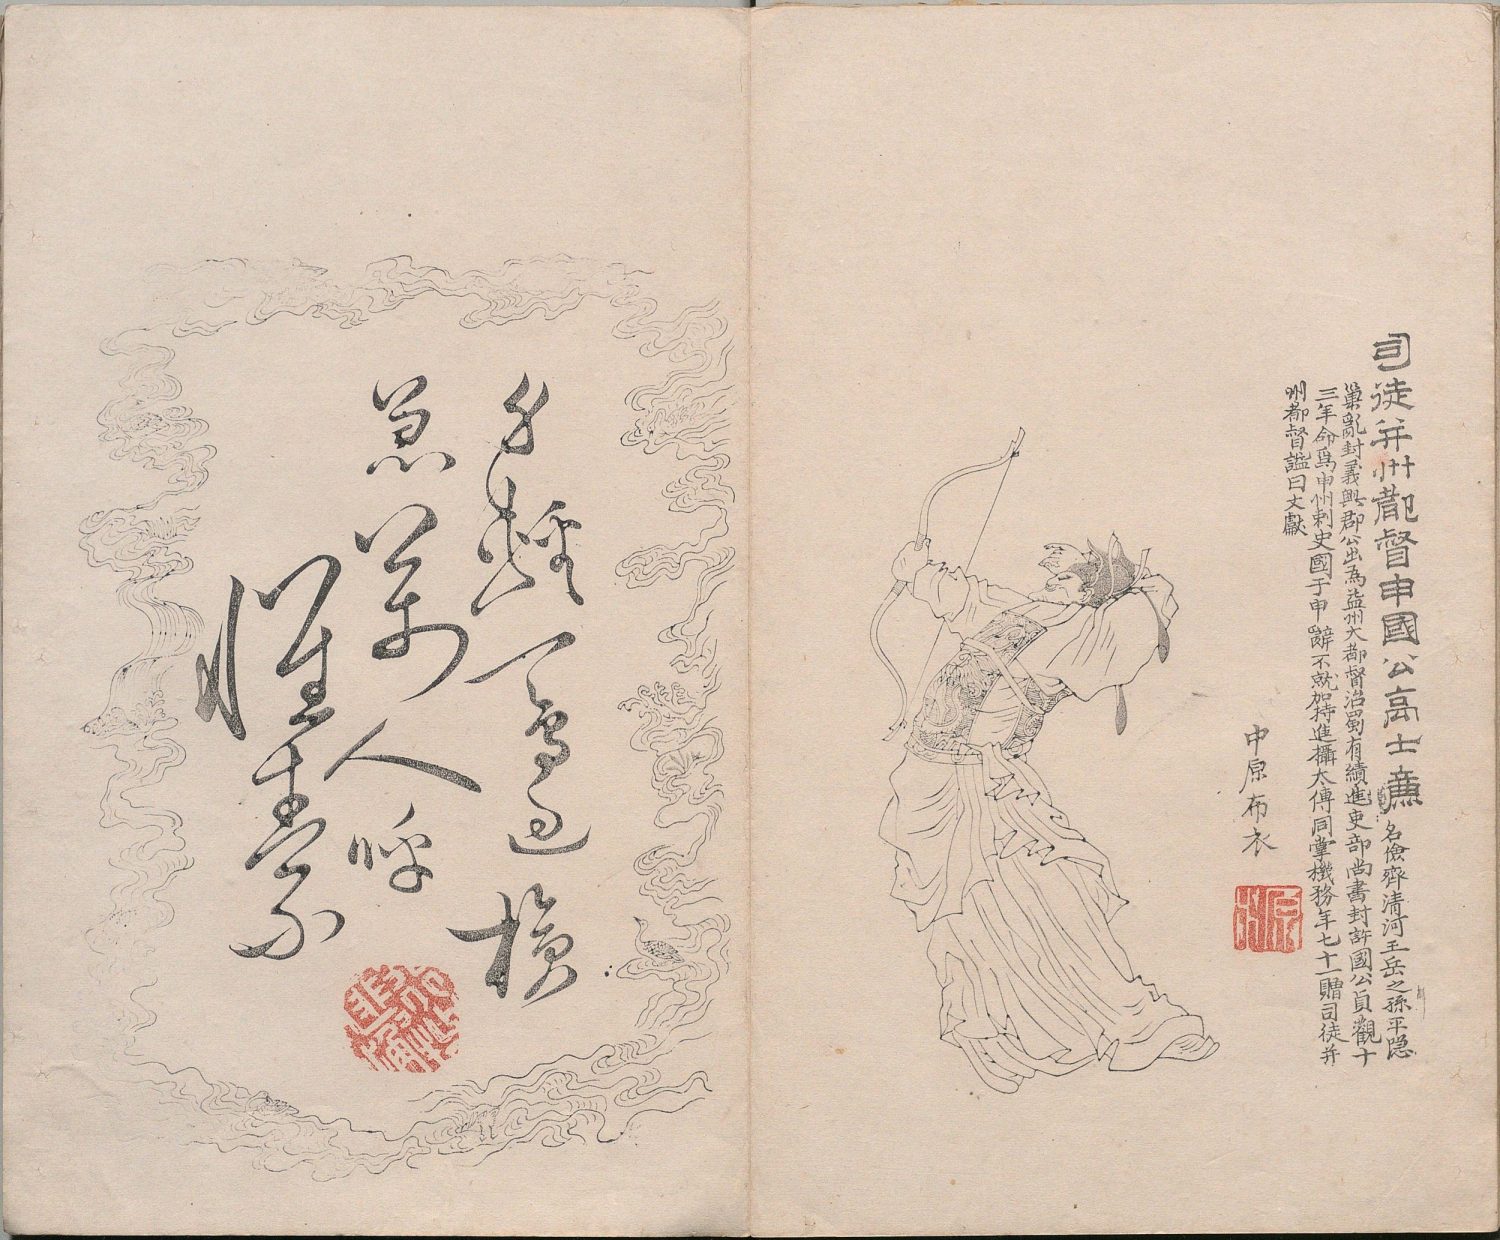 司徒并州都督申國公高士廉
名儉齊清河王岳之孫平隐
巢亂封義興郡公出為益州大都督治蜀有績進吏部尚書封許國公貞觀十
三年命爲申州刺史國于申辭不就加持進攝太傅同掌機務年七十一贈司徒并
州都督謚曰文獻
中原布衣
身輕一鳥過槍
急萬人呼